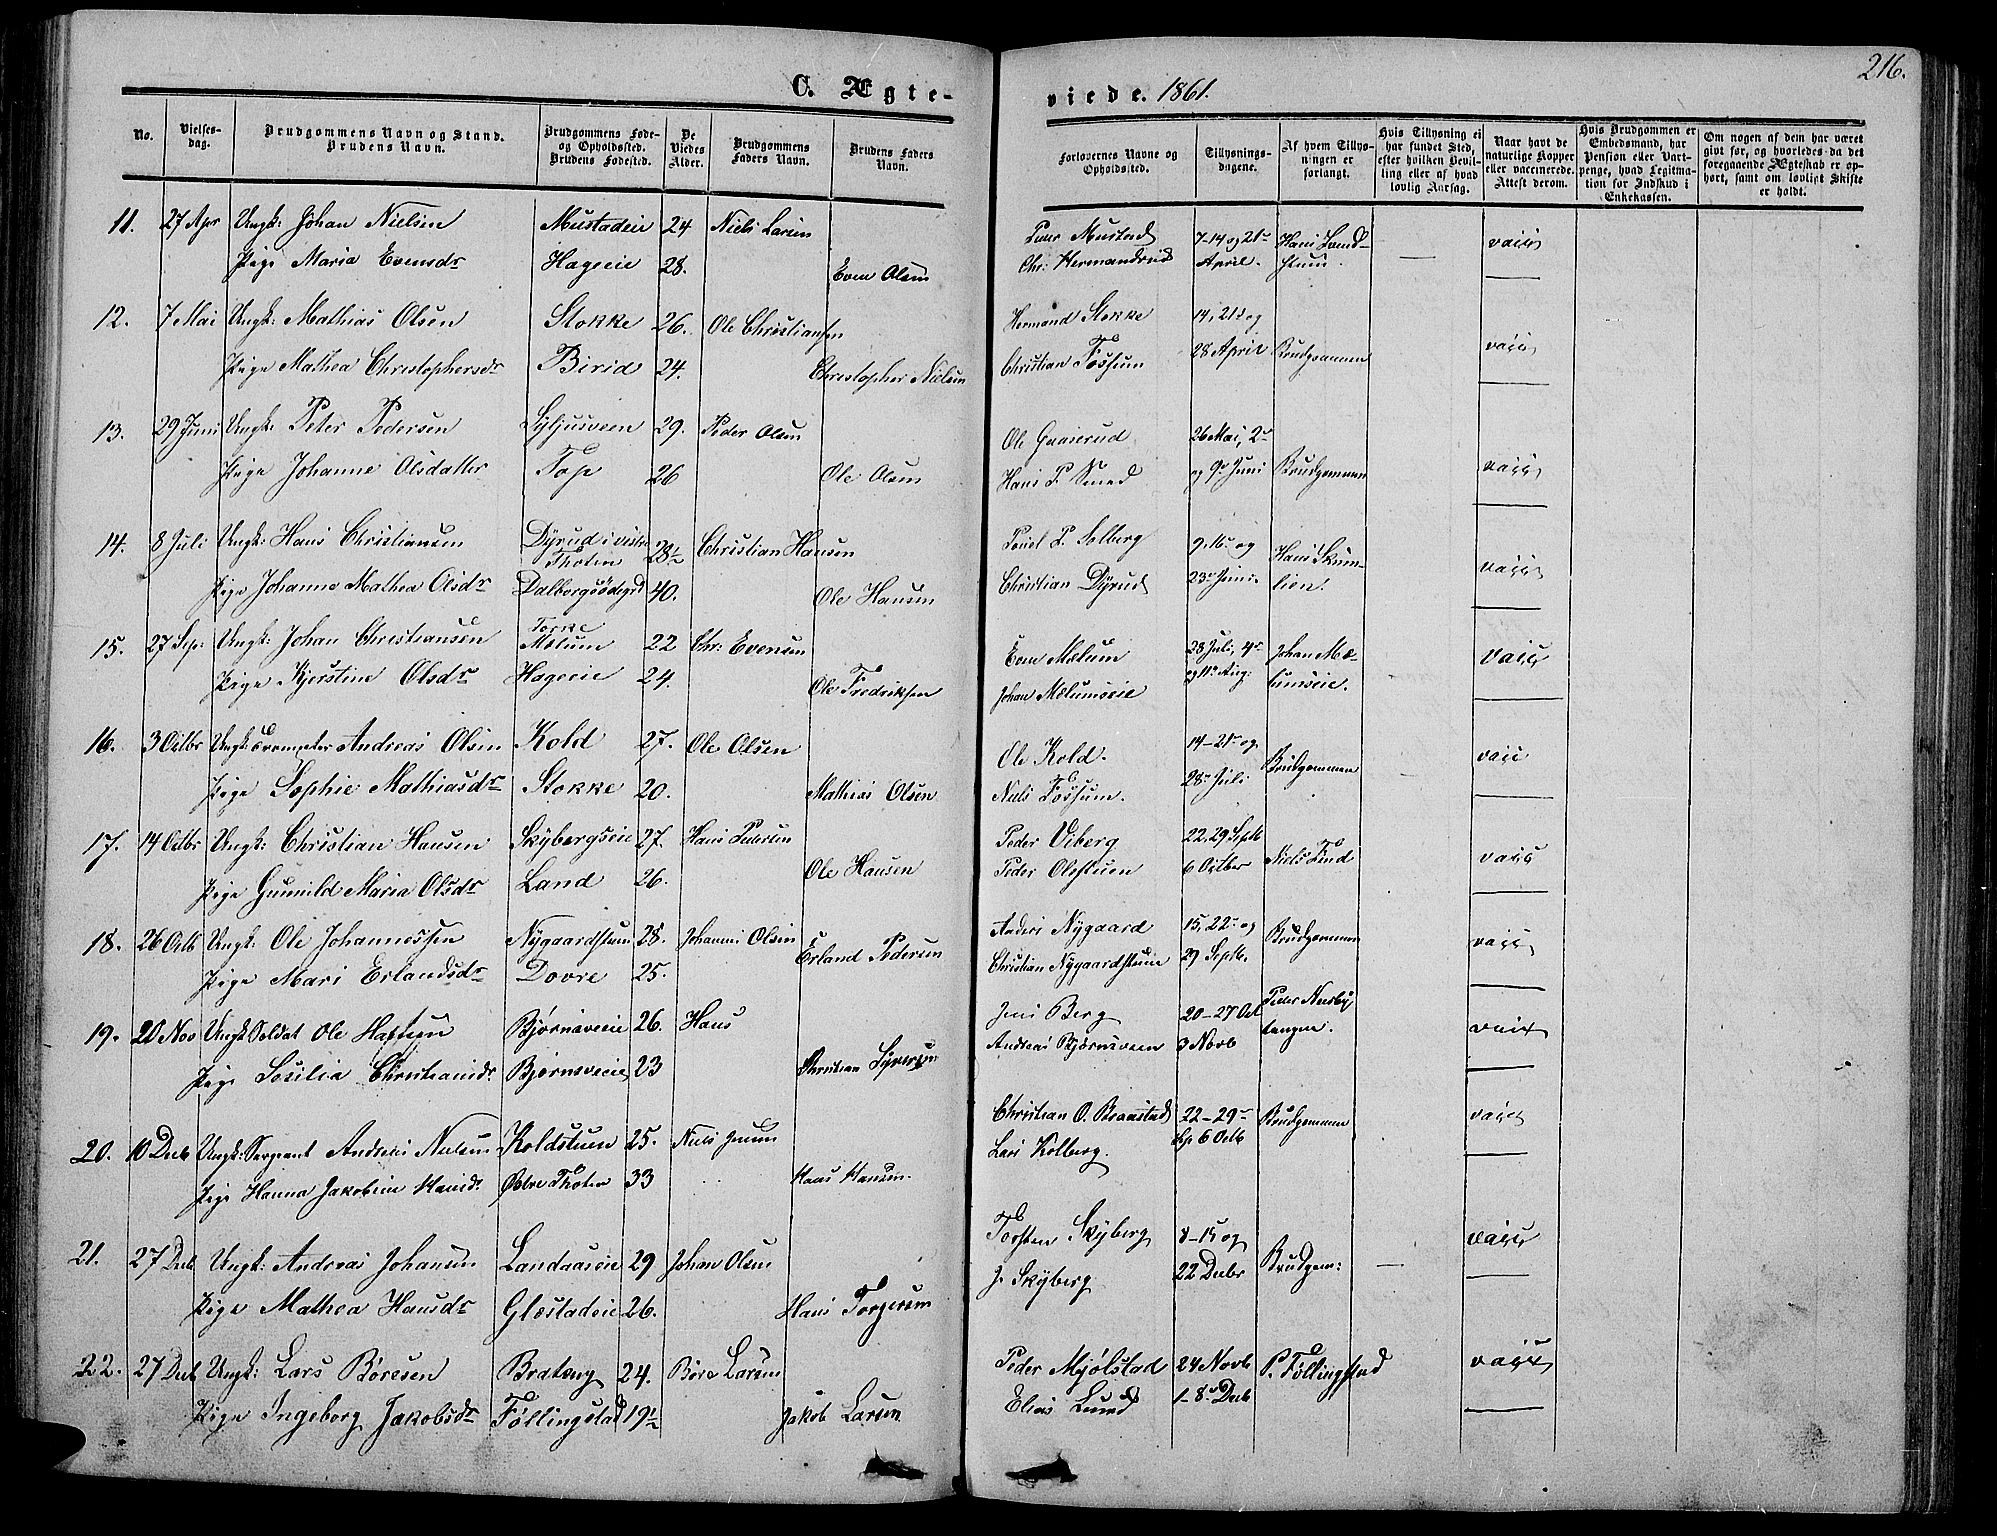 216.
C. Ægteviede. 1861.
No.
Vielses-
dag.
Brudgommens Navn og Stand.
Brudens Navn.
Brudgommens Føde-
og Opholdssted.
Brudens Fødested.
De
Viedes
Alder.
Brudgommens
Faders Navn.
Brudens Faders
Navn.
Forlovernes Navne og
Opholdssted.
Tillysnings-
dagene.
Af hvem Tillys-
ningen er
forlangt.
Hvis Tillysning ei
har fundet Sted,
efter hvilken Bevil-
ling eller af hvad
lovlig Aarsag.
Naar havt de
naturlige Kopper
eller vaccinerede.
Attest derom.
Hvis Brudgommen er
Embedsmand, har
Pension eller Vart-
penge, hvad Legitima-
tion for Indskud i
Enkekassen.
Om nogen af dem har været
givt før, og hvorledes da det
foregaaende Ægteskab er op-
hørt, samt om lovligt Skifte
er holdt.
11. 27 Apr Ungk: Johan Nielsen Mustadeie 24 Niels Larsen Peder Mustad 7-14 og 21de Hans Lund- vacc
Pige Maria Evensdr Hageeie 28. Even Olsen Chr: Hermandrud April. stuen. —
12. 7 Mai Ungk: Mathias Olsen Stokke 26. Ole Christiansen Hermand Stokke 14, 21 og vacc
Pige Mathea Christophersdr Birid 24. Christopher Nielsen Christian Fossum 28 April Brudgommen
13. 29 Juni Ungk: Peter Pedersen 29. Peder Olsen Ole 26 Mai, 2de vacc
Pige Johanne Olsdatter Fap 26 Ole Olsen Hans P. Smed og 9de Juni Brudgommen
14. 8 Juli Ungk: Hans Christiansen Dyrud i vestre Thoten 28½ Christian Hansen Poul P. Solberg 9, 16de og Hans Skum- vacc
Pige Johanne Mathea Olsdr Dalborgsødegrd 40. Ole Hansen Christian Dyrud 23de Juni lien.
15. 27 Sep: Ungk: Johan Christiansen Torke Mælum 22 Chr: Evensen Even Mælum 28 Juli, 4de Johan Mæ- vacc
Pige Kjerstine Olsdr Hageeie 24. Ole Fredriksen Johan Mælumseie og 11te Aug: lumseie.
16. 3 Octbr Ungk: Trompeter Andreas Olsen Kold 27. Ole Olsen Ole Kold. 14-21de og vacc
Pige Sophie Mathiasdr Stokke 20. Mathias Olsen Niels Fossum. 28de Juli Brudgommen
17. 14 Octbr Ungk: Christian Hansen Skybergseie 27. Hans Pedersen Peder Viberg 22, 29 Septb Niels Lind vacc
Pige Gunnild Maria Olsdr Land 26. Ole Hansen Peder Olestuen 6 Octber
18. 26 Octb Ungk: Ole Johannessen Nygaardstuen 28. Johannes Olsen Anders Nygaard 15, 22de og Brudgommen vacc
Pige Mari Erlandsdr Dovre 25. Erland Pedersen Christian Nygaardstuen 29 Septb.
19. 20 Nov Ungk: Soldat Ole Hansen Bjørnsveeie 26. Hans Jens Berg 20-27 Oct Peder Neisby- vacc
Pige Sosilia Christiansdr Bjørnsveeie 23 Christian Syversen Andreas Bjørnsveen 3 Novb tangen.
20. 10 Decb Ungk: Sergeant Andreas Nielsen Koldstuen 25. Niels Jensen Christian O. Braastad 22-29de Brudgommen vacc
Pige Hanna Jakobine Hansdr Østre Thoten 33 Hans Hansen. Lars Kolberg. Sep 6 Octb
21. 27 Decb Ungk: Andreas Johansen Landaaseie 29 Johan Olsen Torsten Skyberg 8-15 og Brudgom: — vacc
Pige Mathea Hansdr Glæstadeie 26. Hans Torgersen J. Skyberg 22 Decbr
22. 27 Decb Ungk: Lars Børesen Brateng 24. Børe Larsen Peder Mjølstad 24 Novb P. Føllingstad vacc
Pige Ingeborg Jakobsdr Føllingstad 19½ Jakob Larsen Elias Lund 1-8de Decb